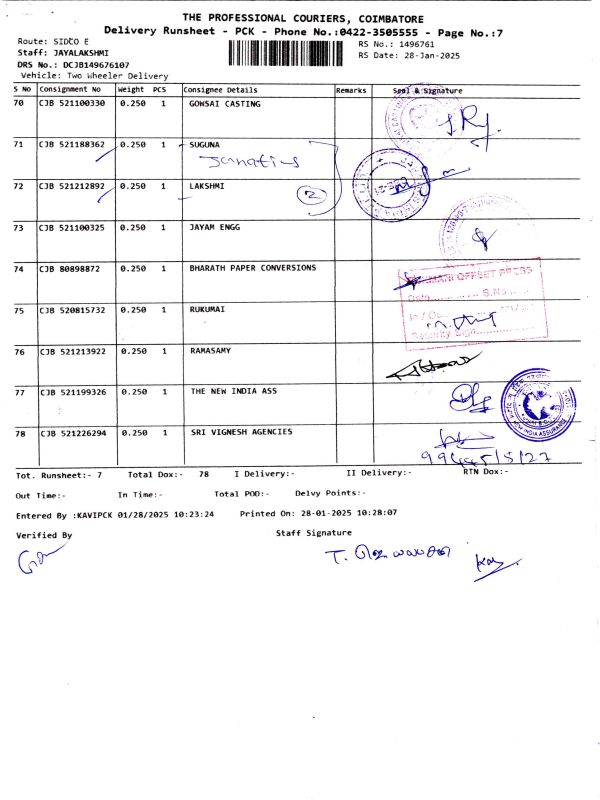 THE PROFESSIONAL COURIERS, COIMBATORE
Delivery Runsheet - PCK - Phone No.:0422-3505555 - Page No.:7
Route: SIDCO E
RS No.: 1496761
Staff: JAYALAKSHMI
RS Date: 28-Jan-2025
DRS No.: DCJB149676107
Vehicle: Two Wheeler Delivery
S No Consignment No Weight PCS Consignee Details Remarks Seal & Signature
70 CJB 521100330 0.250 1 GOWSAI CASTING
71 CJB 521188362 0.250 1 SUGUNA
72 CJB 521212892 0.250 1 LAKSHMI 2
73 CJB 521100325 0.250 1 JAYAM ENGG
74 CJB 80898872 0.250 1 BHARATH PAPER CONVERSIONS
OFFSET PRESS
Date S.No.
Security Sign
75 CJB 520815732 0.250 1 RUKUMAI
76 CJB 521213922 0.250 1 RAMASAMY
77 CJB 521199326 0.250 1 THE NEW INDIA ASS
NEW INDIA ASSURANCE
78 CJB 521226294 0.250 1 SRI VIGNESH AGENCIES
Tot. Runsheet:- 7 Total Dox:- 78 I Delivery:- II Delivery:- RTN Dox:-
Out Time:- In Time:- Total POD:- Delvy Points:-
Entered By :KAVIPCK 01/28/2025 10:23:24 Printed On: 28-01-2025 10:28:07
Verified By Staff Signature